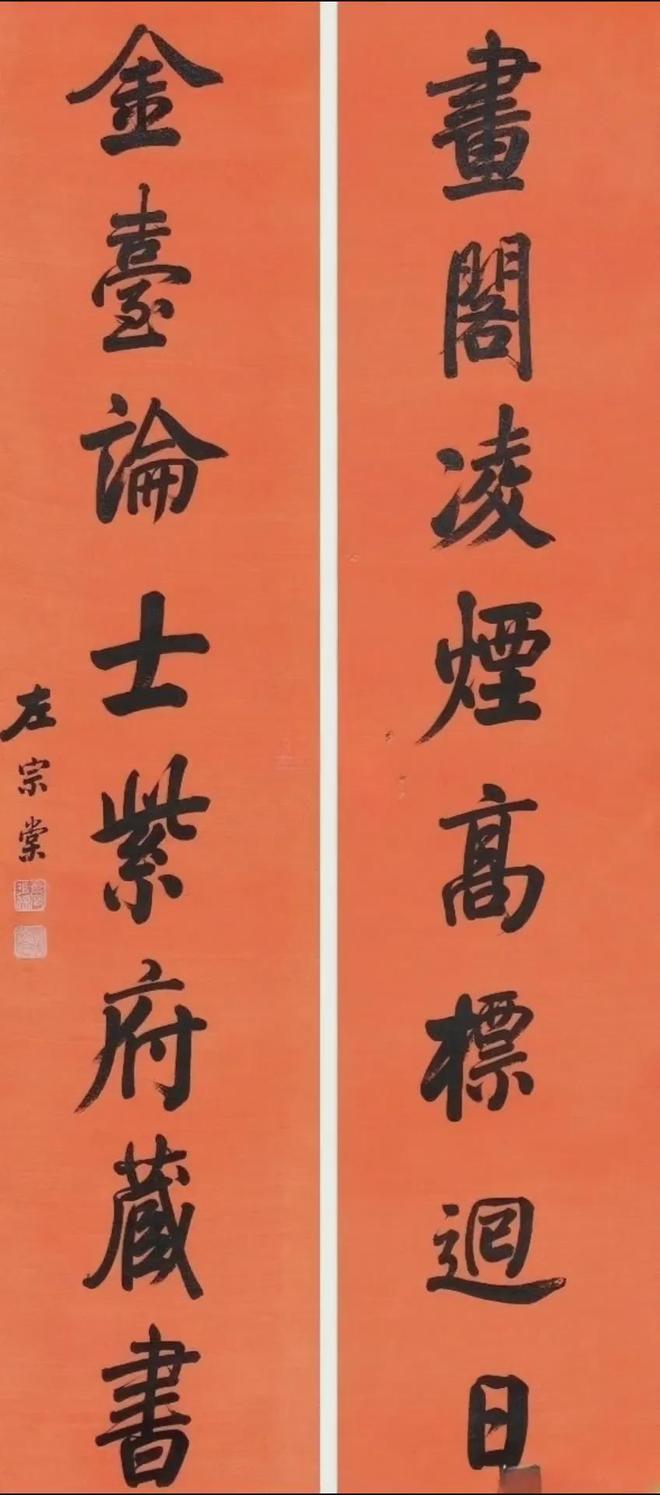 畫閣凌煙高標迴日
金臺論士紫府藏書
左宗棠